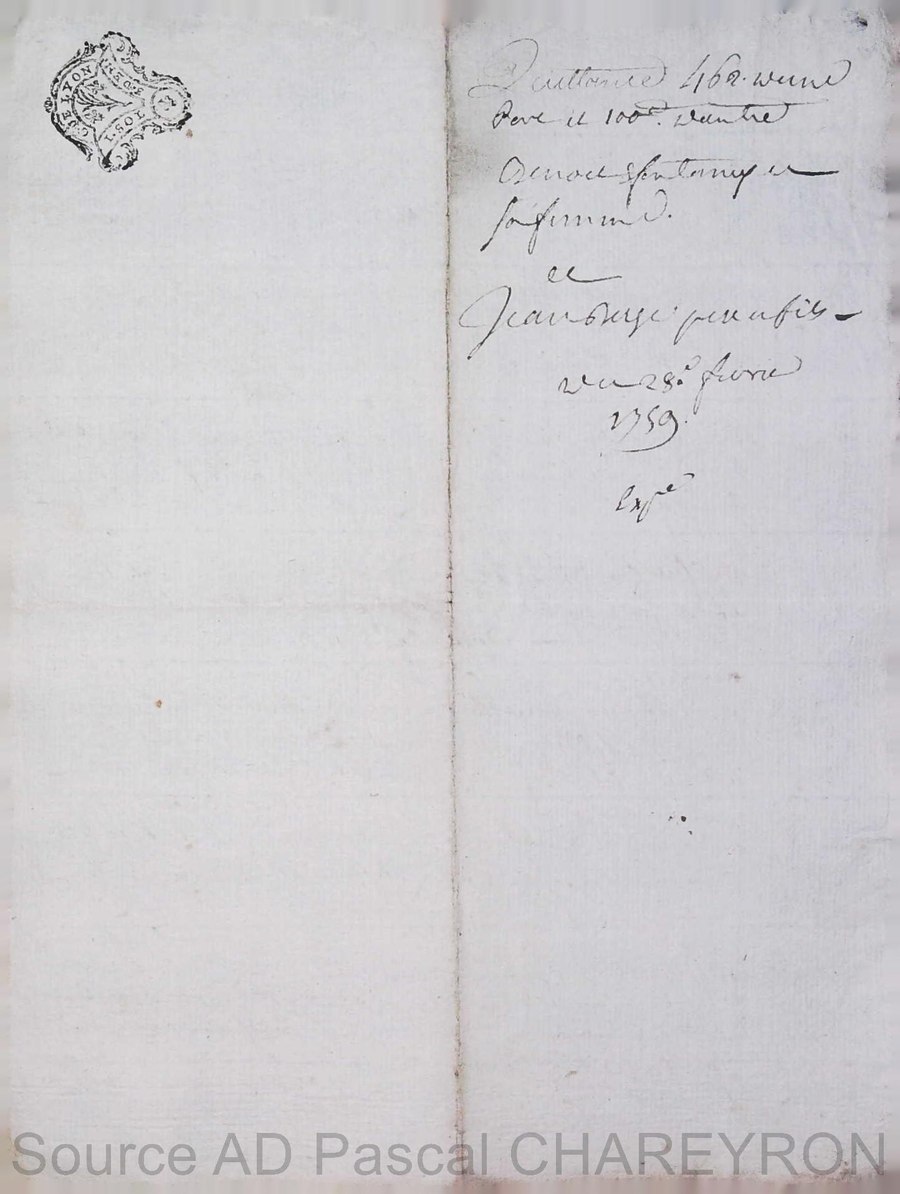 DE LYON
1.SOL
Quittance 462 d'une
Part et 100ᵗ. d'autre
Benoit fontaney et
sa femme.
et
Jean pere et fils
du 28.ᵉ fevrier
1759.
Exp.ᵉ
Source AD Pascal CHAREYRON